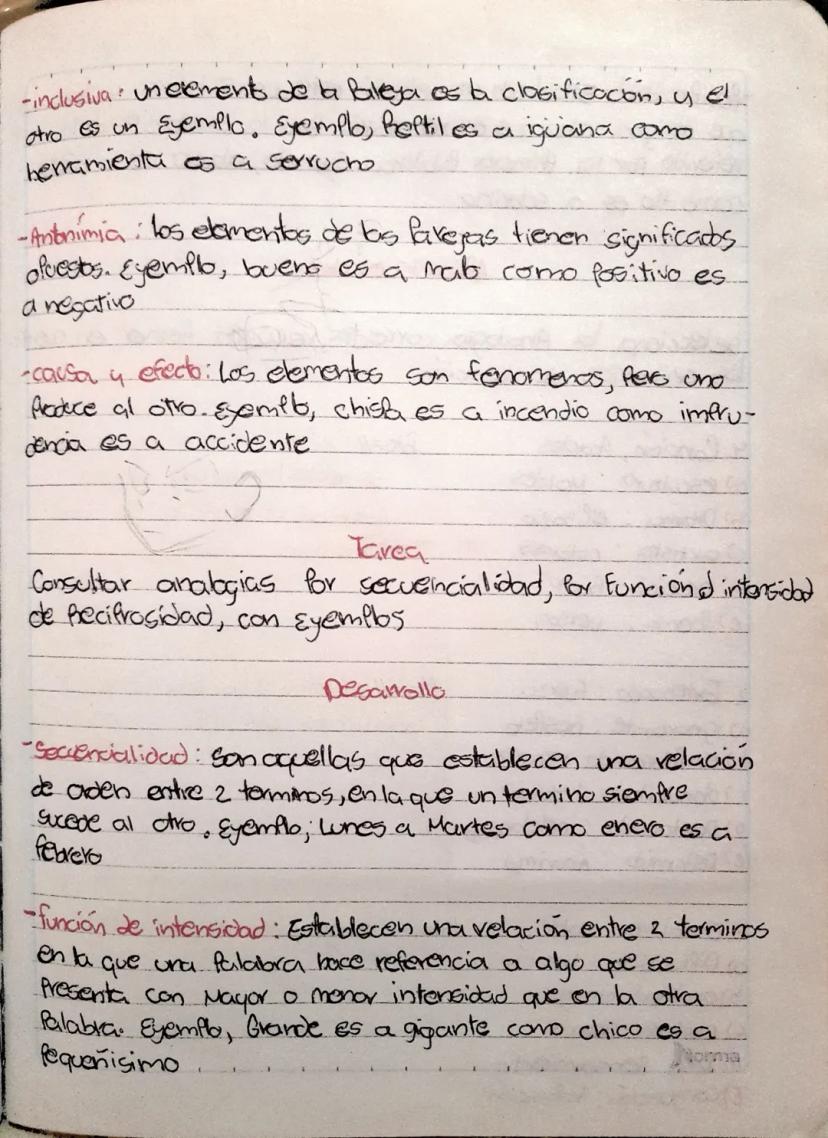 -inclusiva: un elemento de la Pareja es la clasificación, y el
otro es un Ejemplo. Ejemplo, Reptil es a iguana como
herramienta es a serrucho
-Antonimia: los elementos de las Parejas tienen significados
opuestos. Ejemplo, bueno es a malo como Positivo es
a negativo
-causa y efecto: Los elementos son fenomenos, Pero uno
Produce al otro. Ejemplo, chispa es a incendio como impru-
dencia es a accidente
Tarea
Consultar analogias Por secuencialidad, Por Función d intensidad
de Reciprosidad, con Ejemplos
Desarrollo
-Secuencialidad: Son aquellas que establecen una relación
de orden entre 2 terminos, en la que un termino siempre
sucede al otro. Ejemplo; Lunes a Martes como enero es a
febrero
-función de intensidad: Establecen una relación entre 2 terminos
en la que una Palabra hace referencia a algo que se
Presenta con Mayor o menor intensidad que en la otra
Palabra. Ejemplo, Grande es a gigante como chico es a
Pequeñisimo
Norma